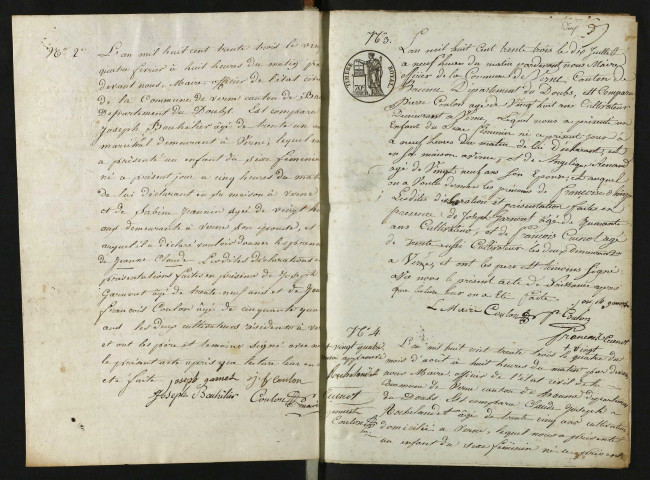 N° 2e
L'an mil huit cent trente trois le vingt
quatre février à huit heures du matin par
devant nous Maire officier de l'état civil
de la Commune de verne canton de Ba
Département du Doubs. Est comparu
Joseph Bouhelier âgé de trente un
maréchal demeurant à Verne, lequel
a présenté un enfant du sexe féminin
né à présent jour à cinq heures du mat
de lui déclarant en sa maison à verne
et de Sabine Jeannin âgé de vingt h
ans demeurante à verne son épouse, et
auquel il a déclaré vouloir donner les prénoms
de Jeanne Claude. Lesdites déclarations et
présentations faites en présence de Joseph
Garnret âgé de trente neuf ans et de Jean
françois Coulon âgé de cinquante qua
ans les deux cultivateurs résidents à ver
et ont les père et témoins signé avec n
le présent acte après que lecture leur en
été faite. joseph garnret j f Coulon
Joseph Bouhelier Coulon maire
N° 3.
TIMBRE ROYAL
70c
L'an mil huit Cent trente trois le dix Juillet
a neuf heures du matin pardevant nous Maire
officier de la Commune de Verne Canton de
Baume Département du Doubs, est Comparu
Pierre Coulon agé de Vingt huit ans Cultivateur
Demeurant a Verne. Lequel nous a présenté un
Enfant du Sexe Féminin né a present jour à
a neuf heures du matin de lui déclarant, et
en sa maison a verne, et de Angelique Renaud
agé de Vingt neuf ans son Epouse, et auquel
on a Voulu donner les prénoms de Françoise
Lesdites déclaration et présentation faites en
presence de Joseph Garnret agé de quarante
ans Cultivateur, et de françois Cuenot agé
de trente Cultivateur les deux demeurant
a Verne, et ont les pere et temoins signé
avec nous le présent acte de Naissance apres
que lecture leur en a été faite. joseph garnret
Le Maire Coulon P. Coulon
François Cuenot
N° 4.
L'an mil huit cent trente trois le vingt quatre du
mois d'août à huit heures du matin par devan
nous Maire, officier de l'état civil de la
Commune de Verne canton de Baume Département
du Doubs. Est comparu Claude Joseph
Rochelandet âgé de trente cinq ans cultivateur
domicilié à Verne, lequel nous a présenté
un enfant du sexe féminin né
vingt quatre
approuvé
Rochelandet
Cuenot
garnret
Coulon